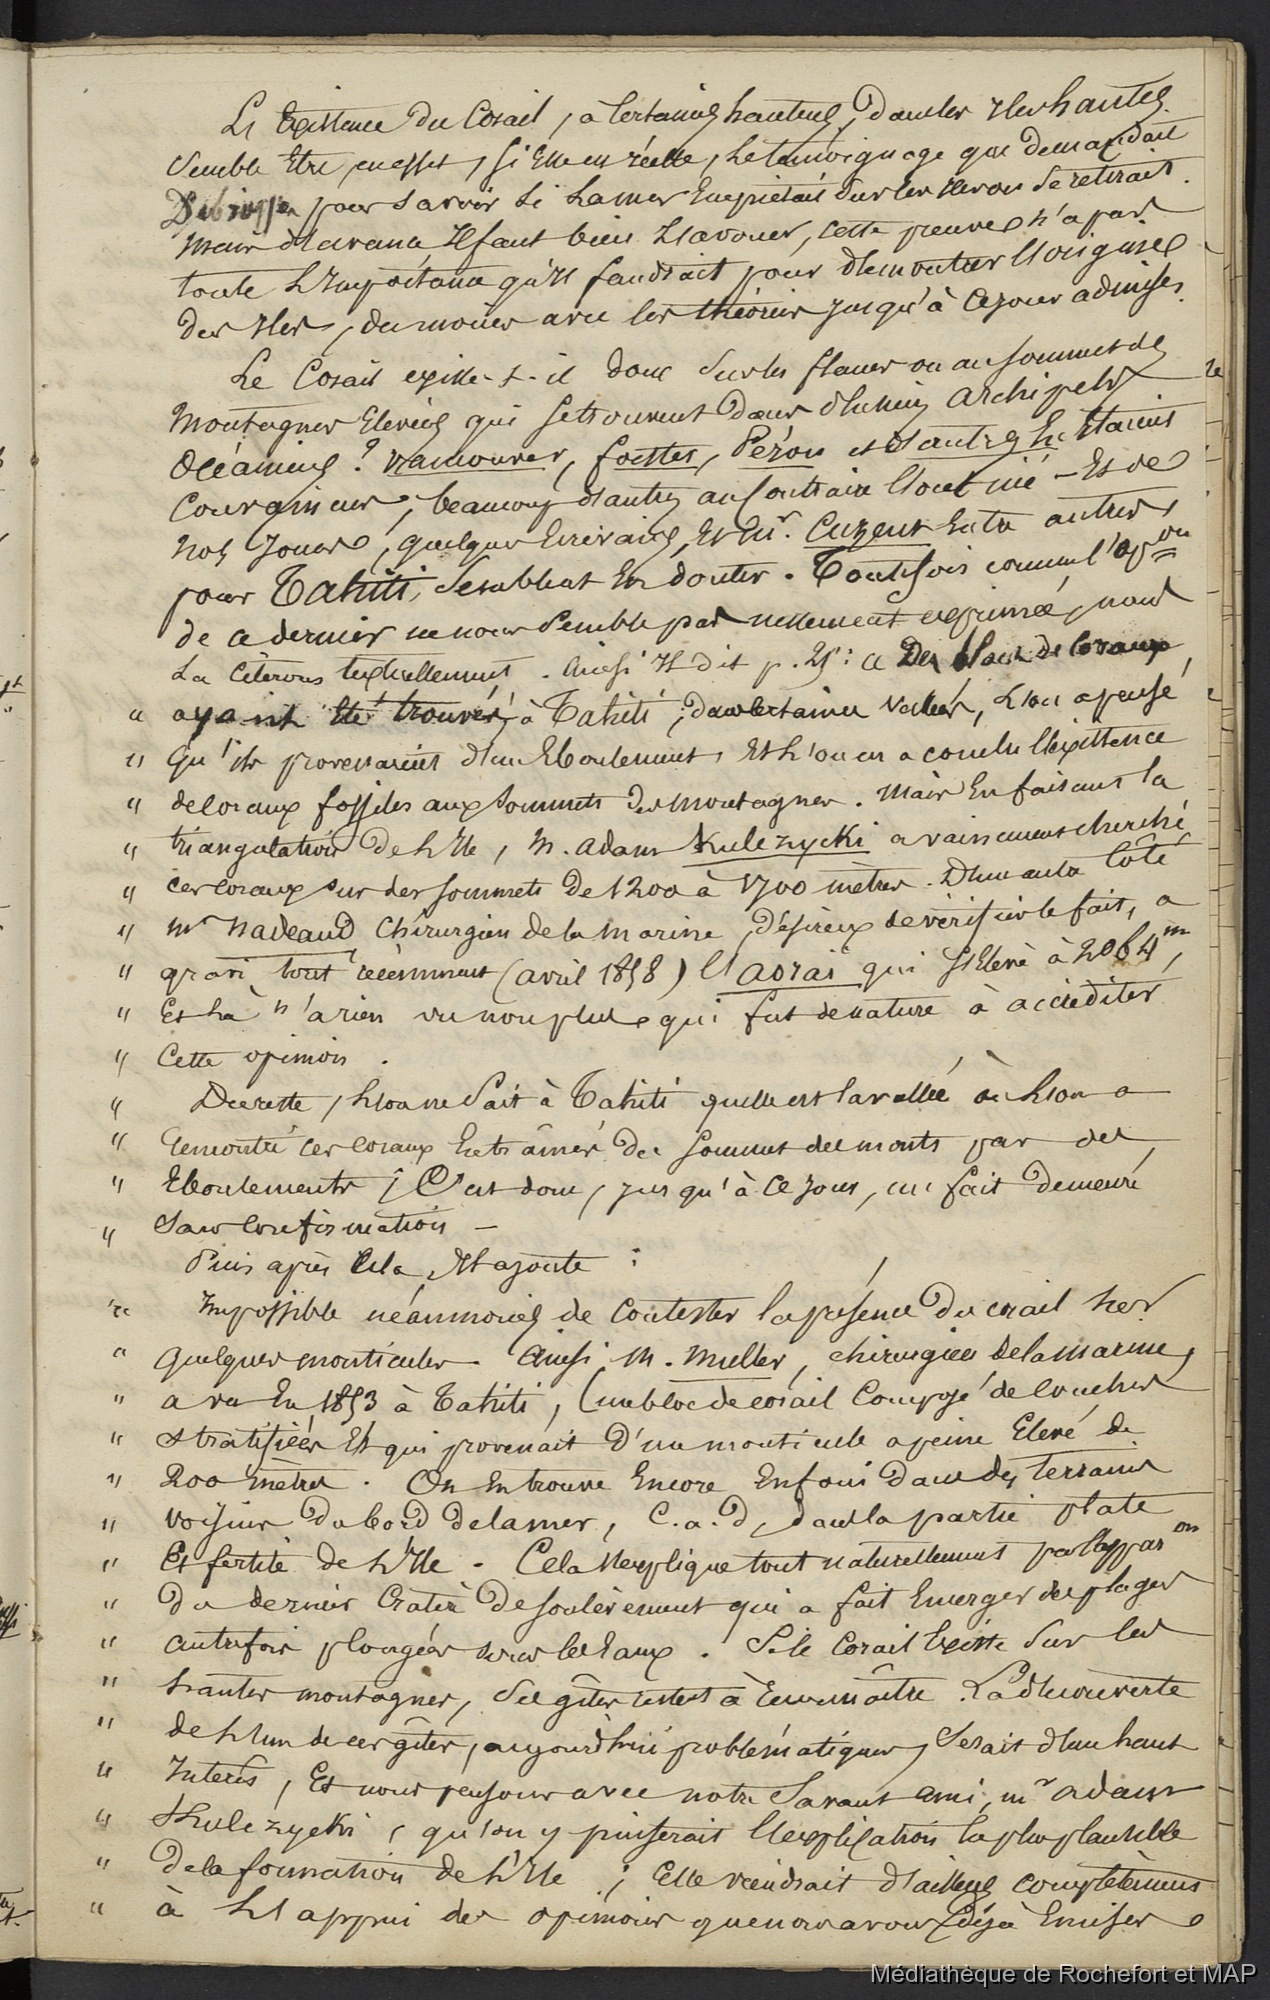 L'Existence du Corail, à certaines hauteurs, dans les Iles hautes
Semble Etre, en effet, si Elle est réelle, le témoignage que demandait
pour savoir si la mer Empiétait sur les Iles ou se retirait.
mais d'avance Il faut bien l'avouer, cette preuve n'a pas
toute l'Importance qu'Il faudrait pour démontrer l'origine
des Iles, du moins avec les théories jusqu'à ce jour admises.
Le Corail existe-t-il donc sur les flancs ou au sommet des
montagnes Elevées qui se trouvent dans d'aucuns archipels
Océaniens ? Vancouver, forster, Péron et d'autres En Etaient
convaincus, beaucoup d'autres au Contraire l'ont nié – Et de
nos Jours, quelques Ecrivains, Et Mr. Cuzent Entre autres,
pour Tahiti, semblent En douter. Toutefois comme l'opon
de ce dernier ne nous semble pas nettement exprimée, nous
La Citerons textuellement. Ainsi Il dit p. 25 : « Des blocs de Coraux
" ayant Eté trouvés, à Tahiti, dans certaines vallées, L'on a pensé
" Qu'ils provenaient d'un Eboulement, Et l'on en a conclu l'existence
" de Coraux fossiles aux sommets des montagnes. Mais En faisant la
" triangulation de L'Ile, M. Adam Kulczycki a vainement cherché
" ces Coraux sur des sommets De 1200 à 1700 mètres. D'un autre Côté
" Mr Nadeaud Chirurgien de la Marine, désireux de vérifier le fait, a
" gravi tout récemment (avril 1858) l'aoraï qui s'Elève à 2064m,
" Et là n'a rien vu non plus qui fut de nature à accréditer
" Cette opinion.
" Du reste, L'on ne sait à Tahiti quelle est la vallée où L'on a
" rencontré ces Coraux Entraînés du sommet des monts par des
" Eboulements ; C'est donc, jusqu'à ce jour, un fait demeuré
" Sans Confirmation –
Puis après Cela, Il ajoute :
" Impossible néanmoins de Contester la présence du corail sur
" quelques monticules. Ainsi M. Muller, chirurgien de la Marine,
" a vu En 1853 à Tahiti, un bloc de corail Composé de Couches
" stratifiées Et qui provenait d'un monticule à peine Elevé de
" 200 mètres. On En trouve Encore Enfoui dans des terrains
" voisins du bord de la mer, C. a. d, dans la partie plate
" Et fertile de L'Ile. Cela s'explique tout naturellement par l'apparon
" du dernier Cratère de soulèvement qui a fait Emerger des plages
" autrefois plongées sous les Eaux. Si le Corail Existe sur les
" hautes montagnes, ses gîtes restent à reconnaître. La découverte
" de L'un de ces gîtes, aujourd'hui problématiques, serait d'un haut
" Intérêt, Et nous pensons avec notre savant ami, Mr Adam
" Kulczycki, qu'on y puiserait l'explication la plus plausible
" de la formation de L'Ile ; Elle viendrait d'ailleurs complètement
" à L'appui des opinions que nous avons déjà Emises